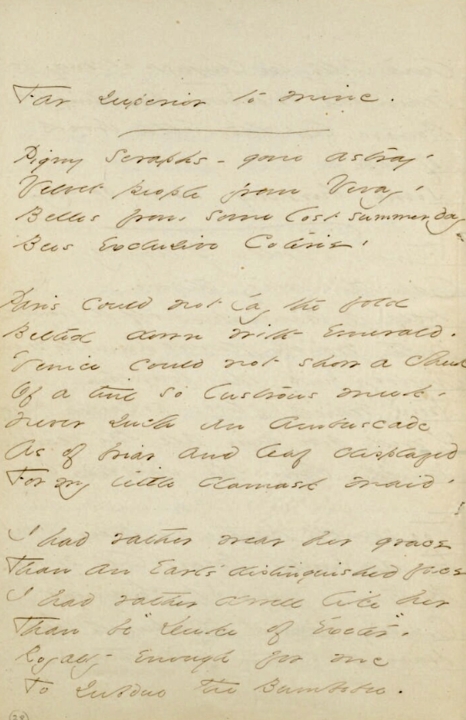 Far superior to mine.
Pigmy Seraphs - gone astray -
Velvet People from Vevay -
Belles from some lost summer day
Bees Exclusive Coterie -
Paris could not lay the fold
Belted down with Emerald -
Venice could not show a cheek
Of a tint so lustrous meek -
Never such an Ambuscade
As of briar and leaf displayed
For my little damask maid -
I had rather wear her grace
Than an Earl's distinguished face
I had rather dwell like her
Than be "Duke of Exeter" -
Royalty enough for me
To subdue the Bumblebee.
(28)